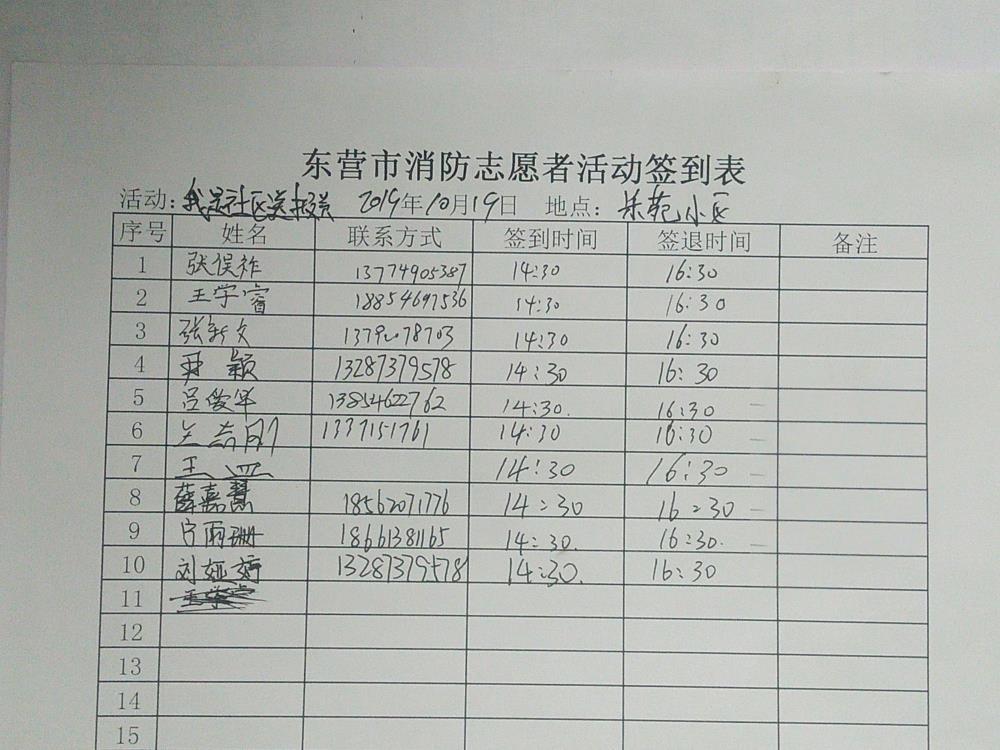 东营市消防志愿者活动签到表
活动：我是社区 2019年10月19日 地点：东苑小区
序号 姓名 联系方式 签到时间 签退时间 备注
1 张俣祚 13774905387 14:30 16:30
2 王学睿 18854697536 14:30 16:30
3 张新文 14:30 16:30
4 颖 13287379578 14:30 16:30
5 吕俊华 13854622762 14:30. 16:30
6 1337151761 14:30 16:30
7 王 14:30 16:30
8 薛嘉慧 18562071776 14:30 16:30
9 宁雨珊 18661381165 14:30. 16:30.
10 刘娅婷 13287379578 14:30. 16:30
11
12
13
14
15